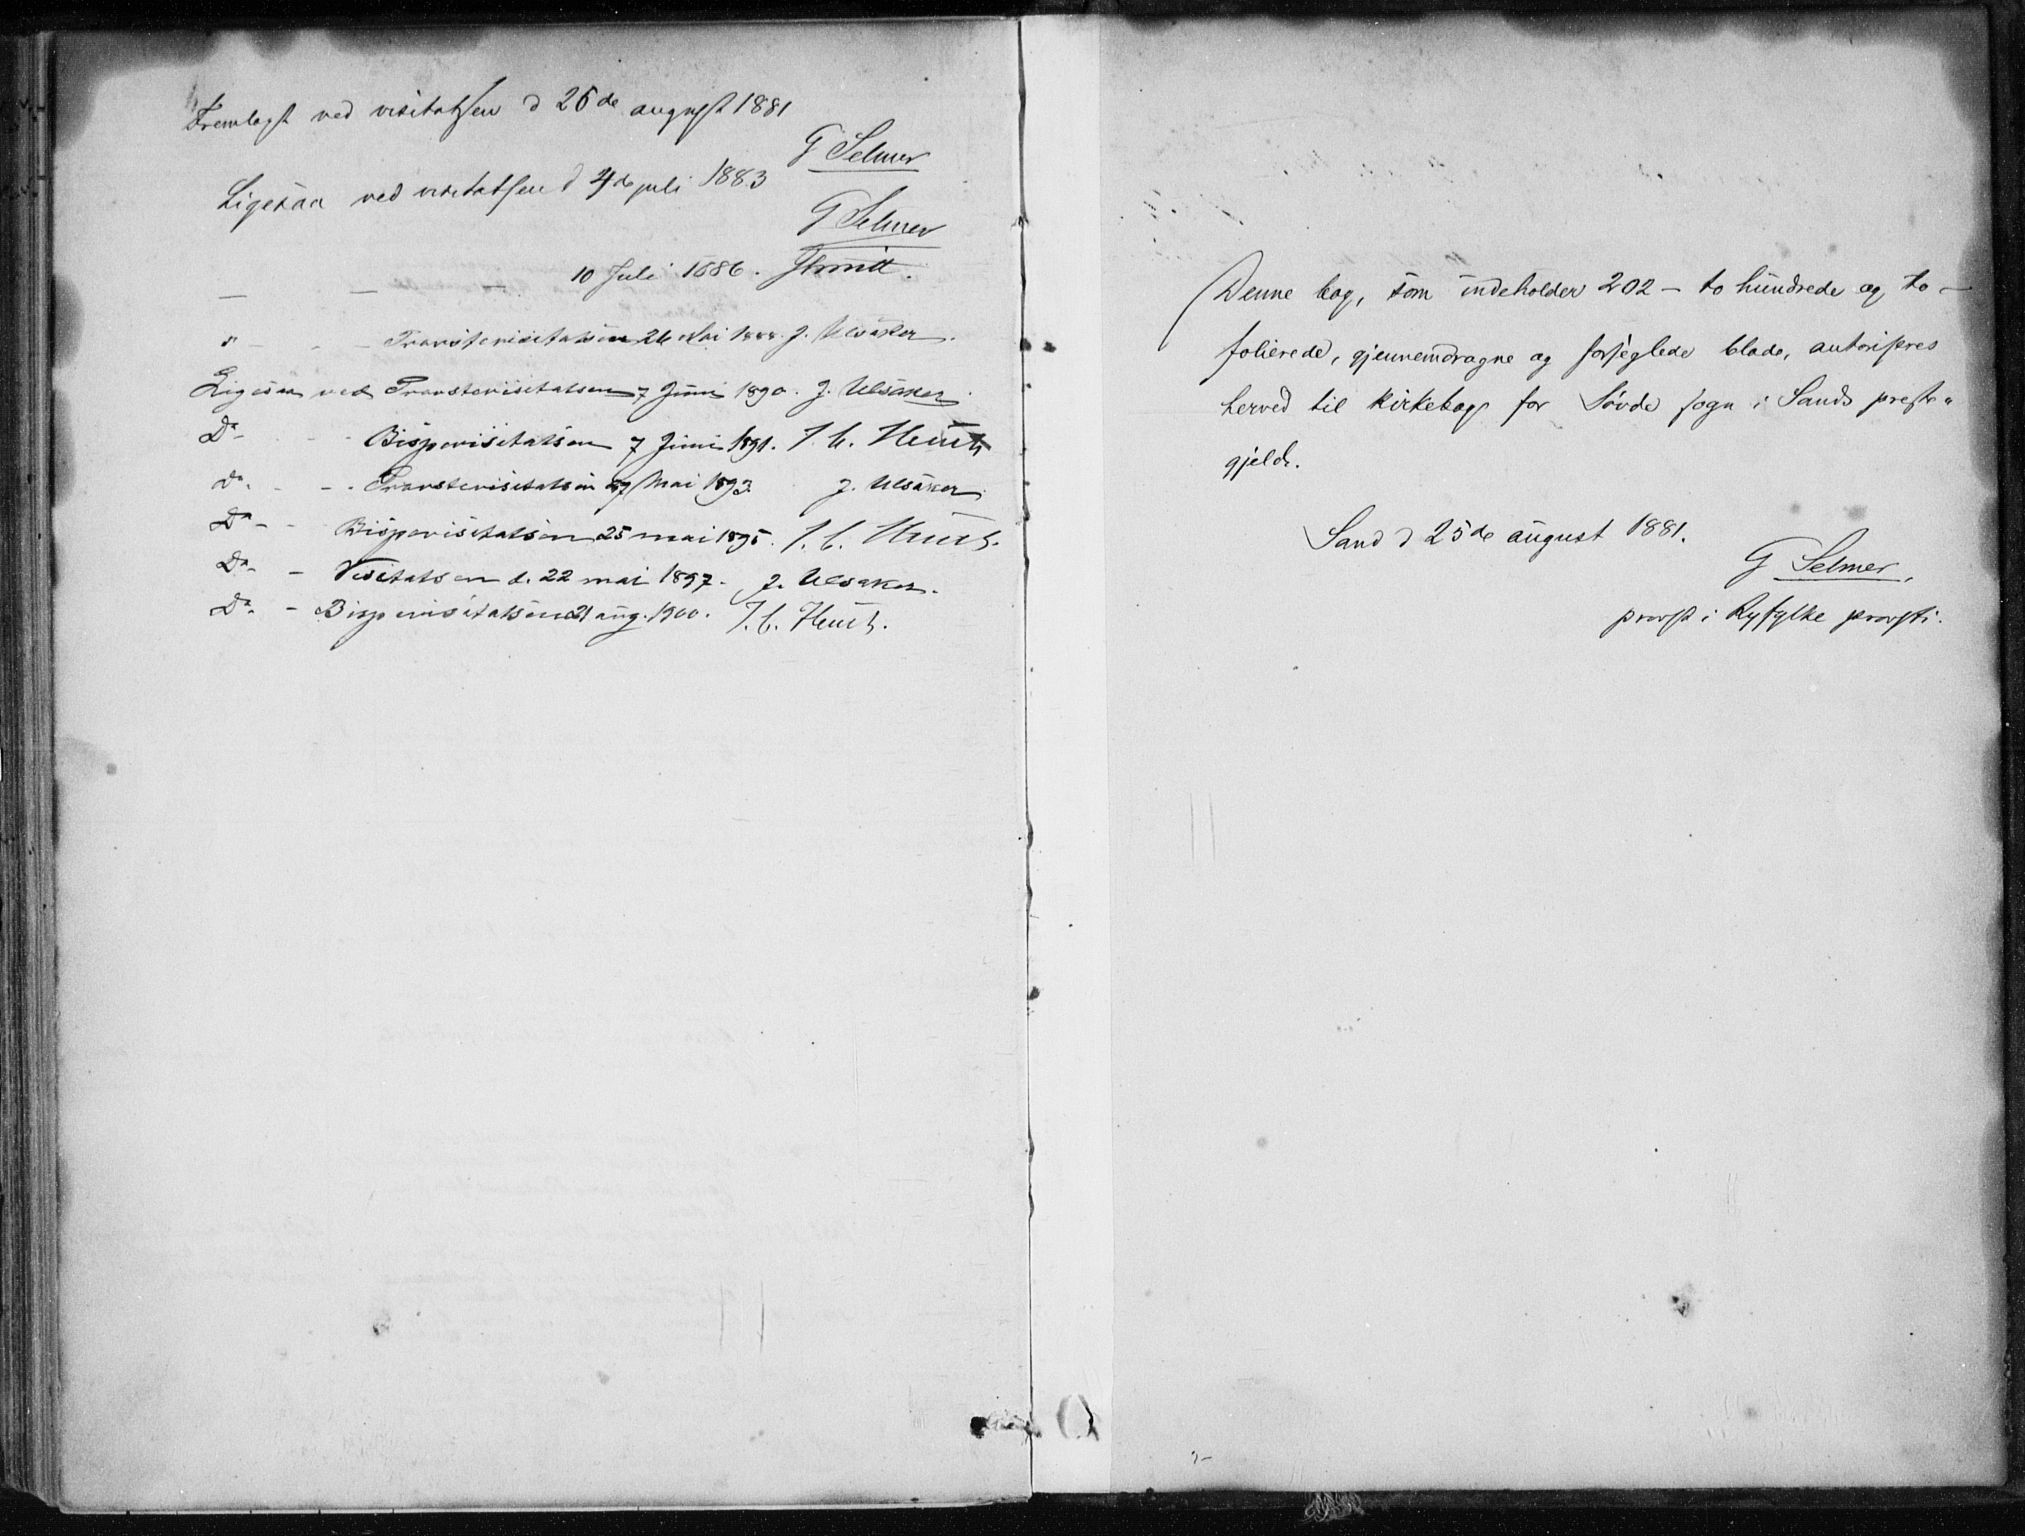 Fremlagt ved visitatsen d 26de august 1881
G Selmer
Ligesaa ved visitatsen d 4de juli 1883
G Selmer
— — — 10 Juli 1886.
" - - - Provstevisitatsen 26 Mai 1888. J. Ulsaker.
Ligesaa ved Provstevisitatsen 7 Juni 1890. J. Ulsaker.
Do - - - Bispevisitatsen 7 Juni 1891. J. C. Heuch
Do. - - - Provstevisitatsen 27 Mai 1893. J. Ulsaker.
Do - - Bispevisitatsen 25 mai 1895. J. C. Heuch.
Do - - Visitatsen d. 22 mai 1897. J. Ulsaker.
Do. - Bispevisitatsen 21 aug. 1900. J. C. Heuch.
Denne bog, som indeholder 202 — to hundrede og to —
folierede, gjennemdragne og forseglede blade, autoriseres
herved til kirkebog for Søvde sogn i Sands preste-
gjeld.
Sand d 25de august 1881.
G Selmer,
provst i Ryfylke provsti.